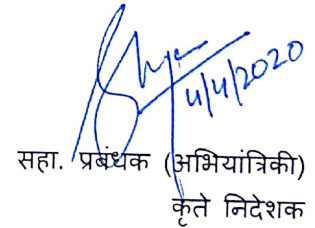 4/4/2020
सहा. प्रबंधक (अभियांत्रिकी)
कृते निदेशक